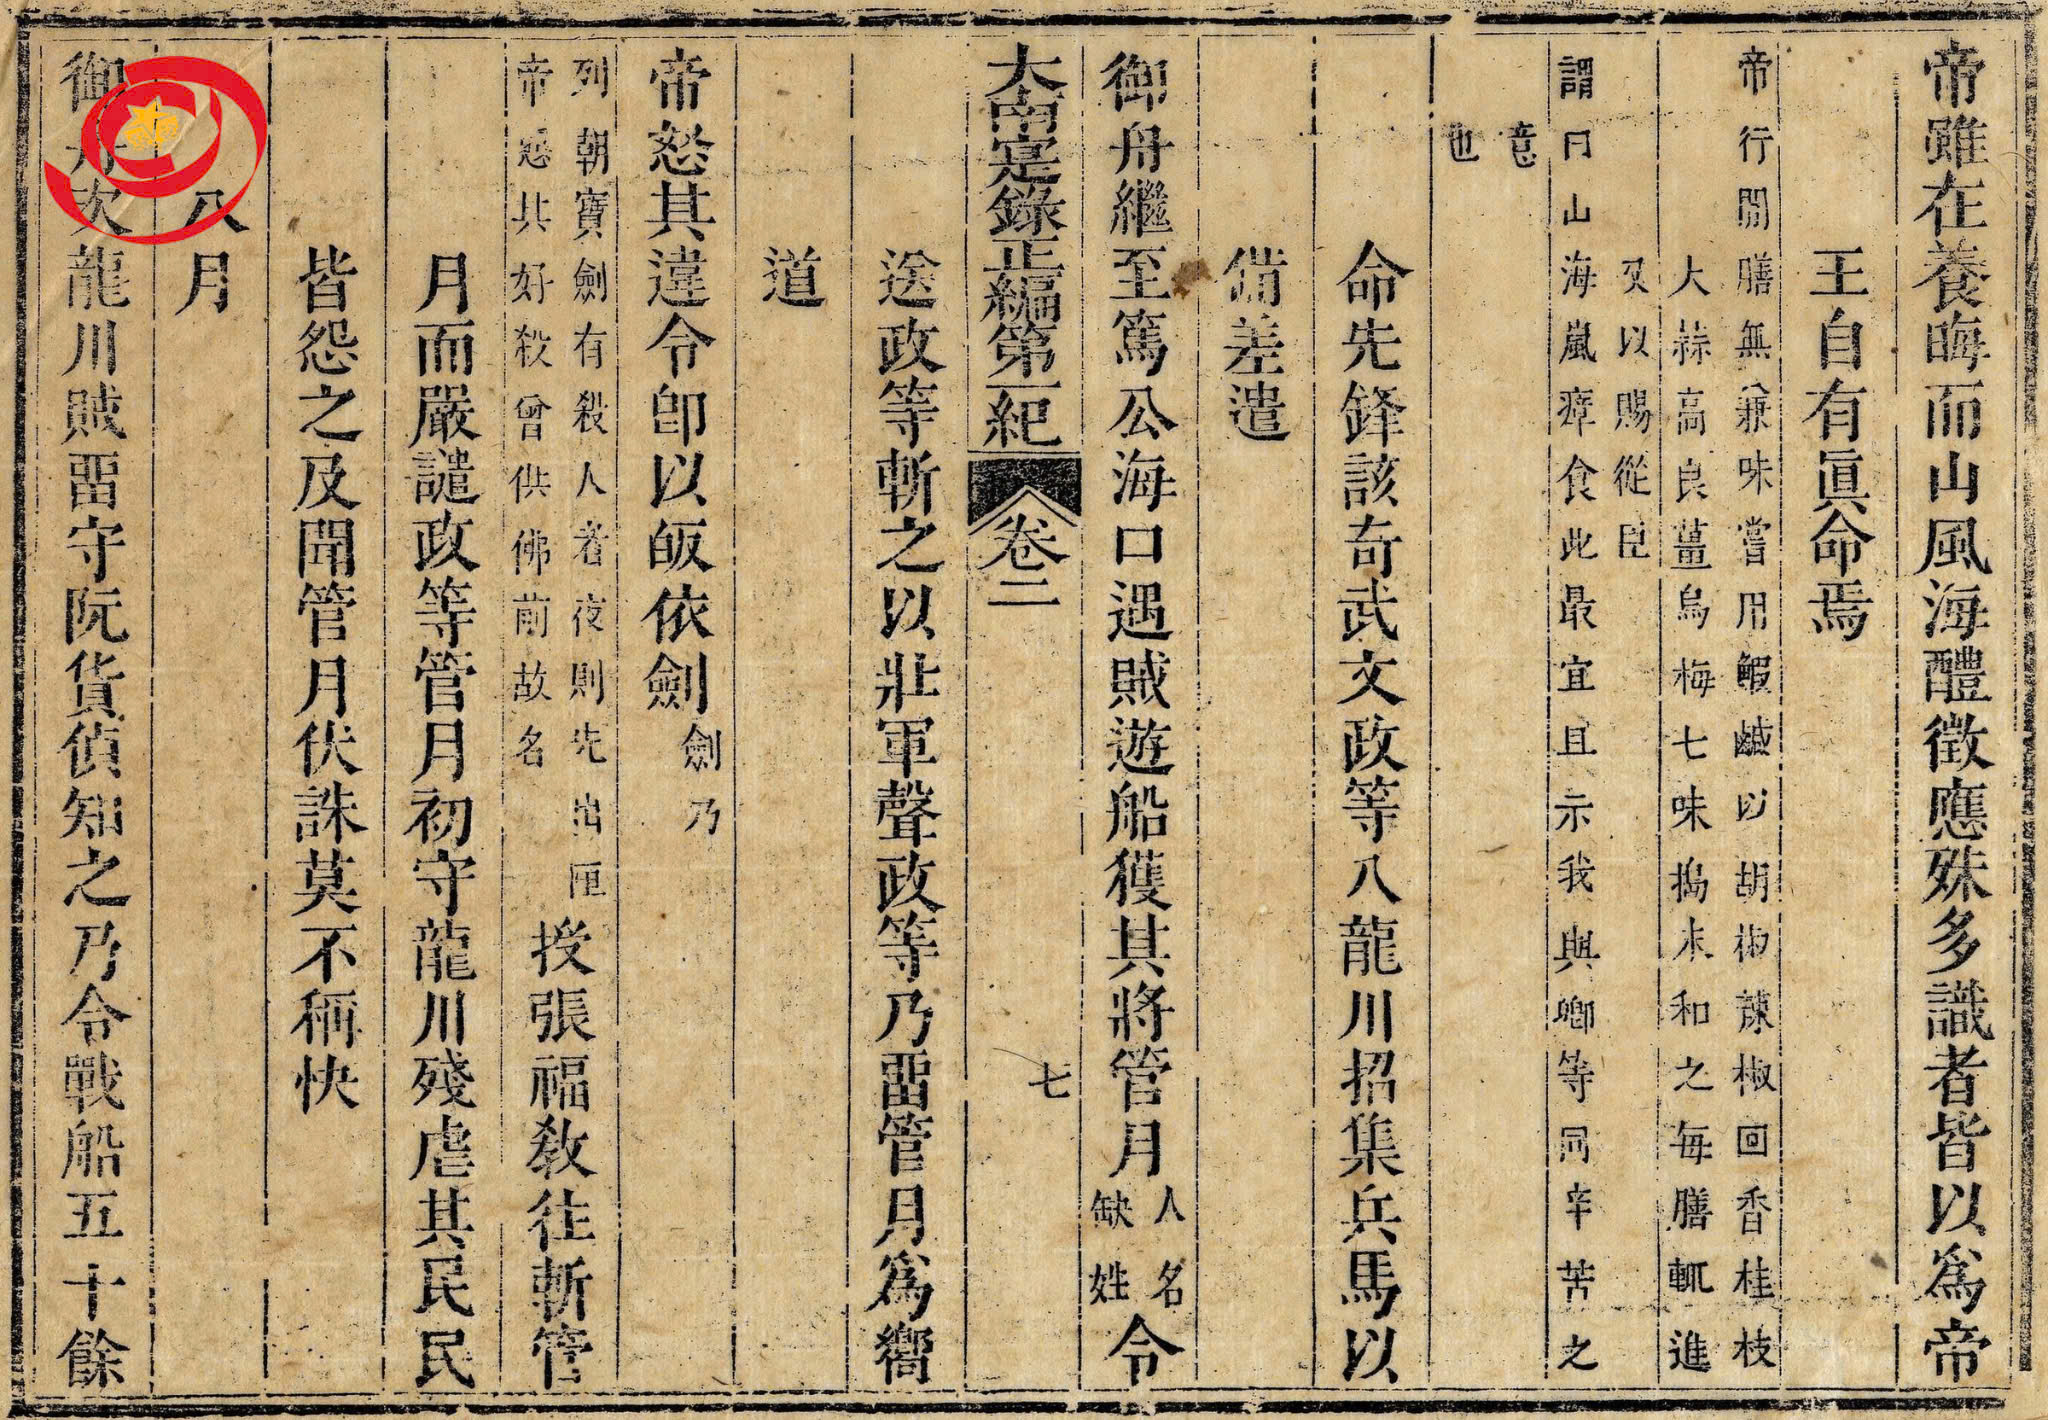 帝雖在養晦而山風海醴徵應殊多識者皆以爲帝
王自有眞命焉
帝行間膳無兼味嘗用鰕鹹以胡椒蔯椒回香桂枝
大蒜高良薑烏梅七味搗末和之每膳輒進
及以賜從臣
謂曰山海嵐瘴食此最宜且示我與卿等同辛苦之
意
也
命先鋒該奇武文政等八龍川招集兵馬以
備差遣
御舟繼至篤公海口遇賊遊船獲其將管月
人名
缺姓
令
大南寔錄正編第一紀 卷二
七
送政等斬之以壯軍聲政等乃畱管月爲嚮
道
帝怒其違令卽以皈依劍
劍乃
列朝寶劍有殺人者夜則先出匣
帝惡其好殺曾供佛前故名
授張福敎往斬管
月而嚴譴政等管月初守龍川殘虐其民民
皆怨之及聞管月伏誅莫不稱快
八月
御舟次龍川賊畱守阮貨偵知之乃令戰船五十餘